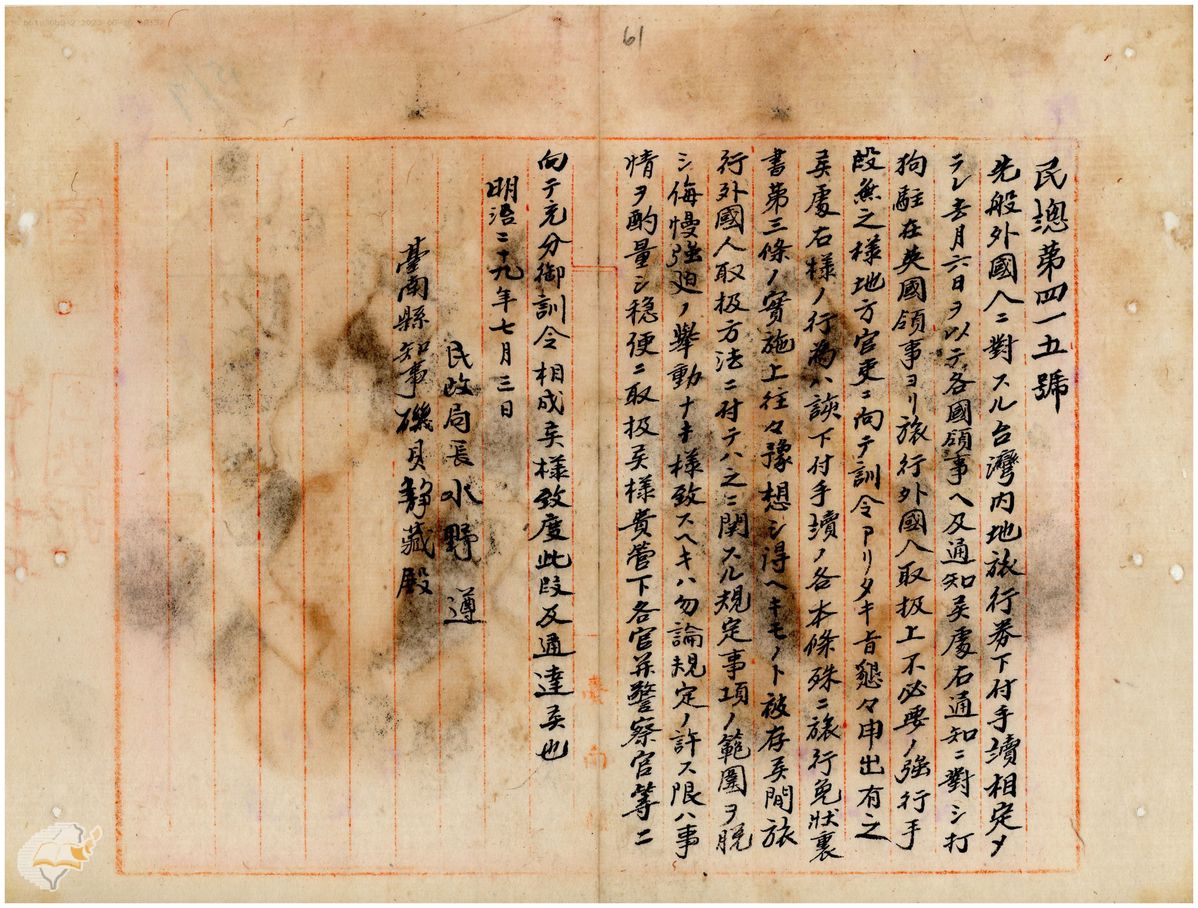 61
民總第四一五號
先般外國人ニ對スル台灣内地旅行券下付手續相定メ
ラレ去月六日ヲ以テ各國領事ヘ及通知候處右通知ニ對シ打
狗駐在英國領事ヨリ旅行外國人取扱上不必要ノ強行手
段無之樣地方官吏ニ向テ訓令アリタキ旨懇々申出有之
候處右樣ノ行為ハ該下付手續ノ各本條殊ニ旅行免状裏
書第三條ノ實施上往々豫想シ得ヘキモノト被存候間旅
行外國人取扱方法ニ付テハ之ニ関スル規定事項ノ範圍ヲ脱
シ侮慢強迫ノ舉動ナキ様致スヘキハ勿論規定ノ許ス限ハ事
情ヲ酌量シ穏便ニ取扱候様貴管下各官并警察官等ニ
向テ充分御訓令相成候様致度此段及通達候也
明治二十九年七月三日
民政局長水野遵
臺南縣知事磯貝靜藏殿
臺南